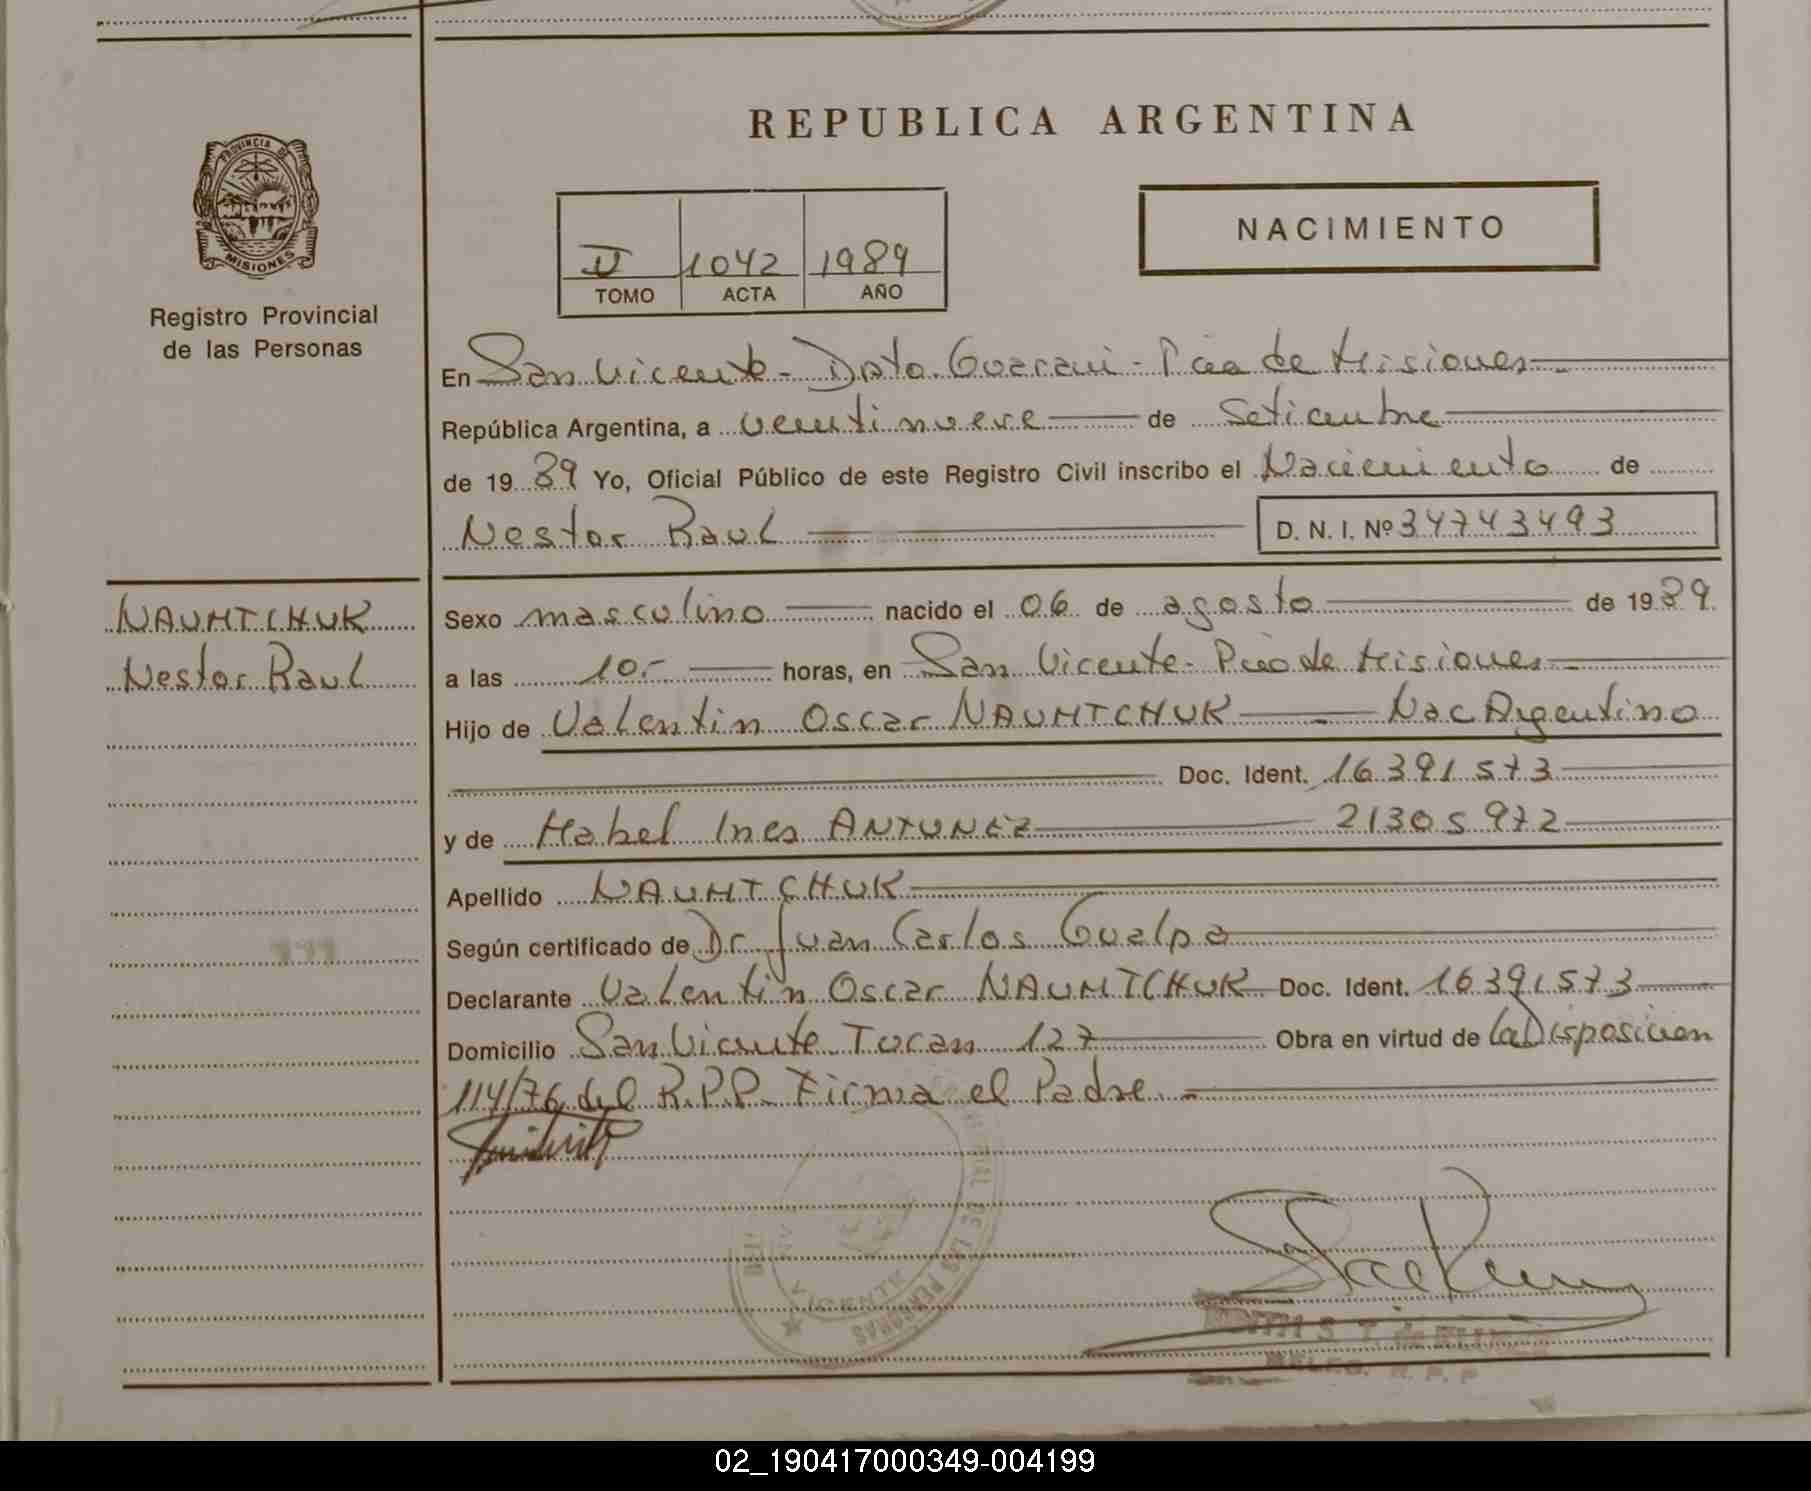 REPUBLICA ARGENTINA
PROVINCIA DE
MISIONES
Registro Provincial
de las Personas
II 1042 1989
TOMO ACTA AÑO
NACIMIENTO
En San Vicente - Dpto. Guarani - Pcia de Misiones
República Argentina, a veintinueve de Setiembre
de 19 89 Yo, Oficial Público de este Registro Civil inscribo el Nacimiento de
Nestor Raul D. N. I. Nº 34743493
NAUMTCHUK
Nestor Raul
Sexo masculino nacido el 06 de agosto de 19 89
a las 10.- horas, en San Vicente - Pcia de Misiones
Hijo de Valentin Oscar NAUMTCHUK Nac Argentino
Doc. Ident. 16391573
y de Mabel Ines ANTUNEZ 21305972
Apellido NAUMTCHUK
Según certificado de Dr Juan Carlos Gualpa
Declarante Valentin Oscar NAUMTCHUK Doc. Ident. 16391573
Domicilio San Vicente Tucan 127 Obra en virtud de la Disposicion
114/76 del R.P.P. Firma el Padre.-
DE LAS PERSONAS
VICENTE
R. P. P
02_190417000349-004199